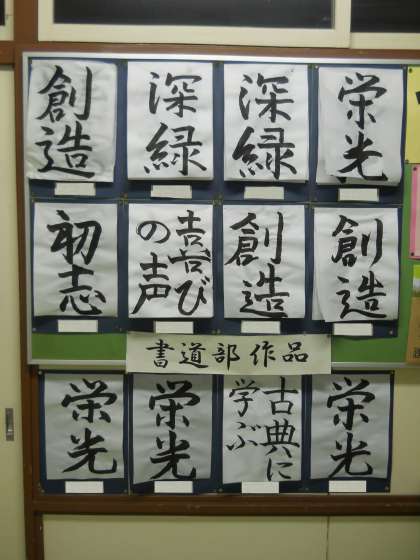 創造
深緑
深緑
栄光
初志
喜びの声
創造
創造
書道部作品
栄光
栄光
古典に学ぶ
栄光